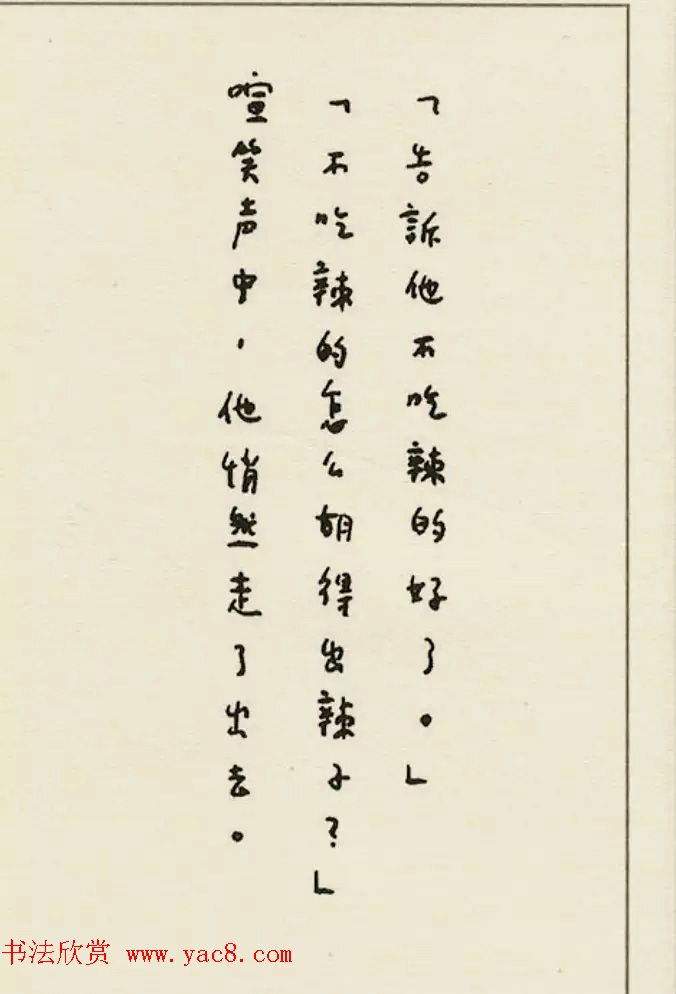 「告訴他不吃辣的好了。」
「不吃辣的怎么胡得出辣子?」
喧笑声中,他悄然走了出去。
书法欣赏 www.yac8.com